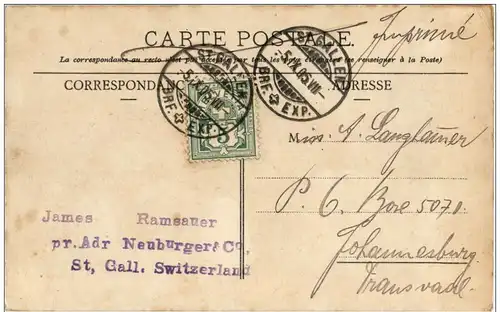 CARTE POSTALE.
Imprimé
(La correspondance au recto n'est pas acceptée par tous les pays étrangers (se renseigner à la Poste)
CORRESPONDANCE
ADRESSE
ST. GALLEN
5.IX.05.VII-
BRF. EXP.
ST. GALLEN
5.IX.05.VII-
BRF. EXP.
5
Miss. A. Langhamer
P. O. Boxe 5070.
Johannesburg
Transvaal.
James Ramsauer
pr. Adr Neuburger & Co.
St, Gall. Switzerland